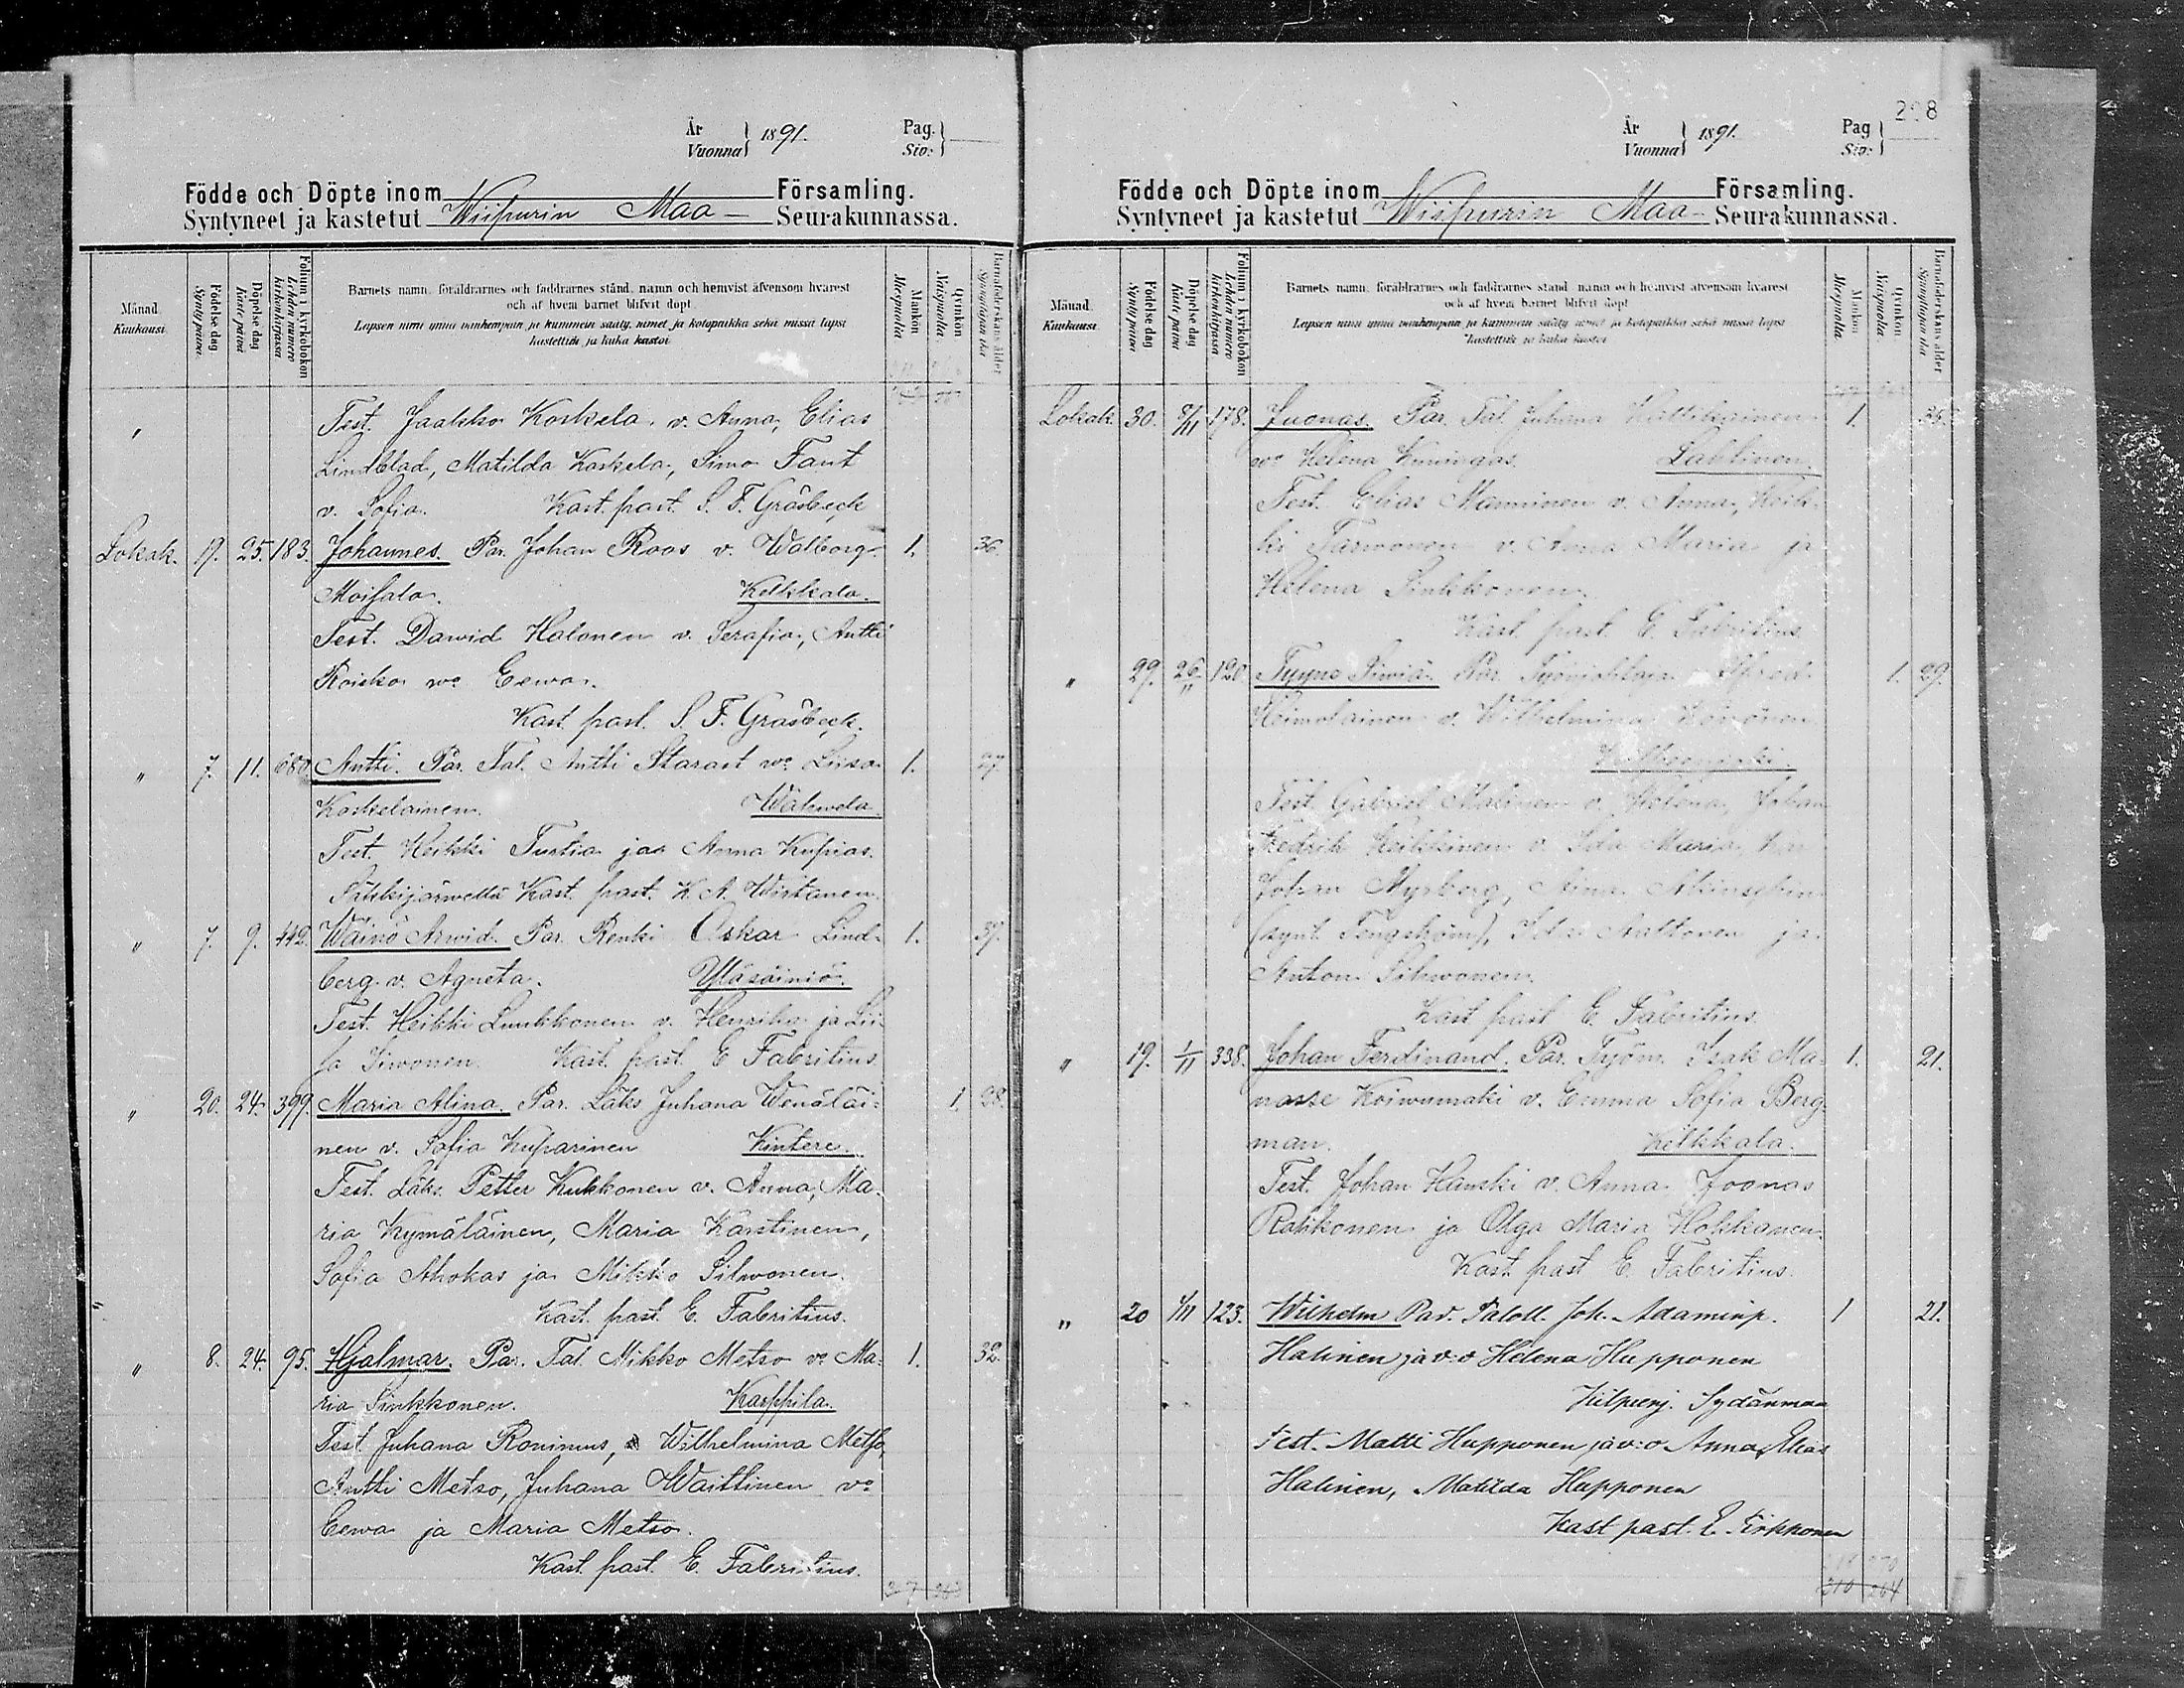 År
Vuonna } 1891.
Pag.
Siv.
Födde och Döpte inom Församling.
Syntyneet ja kastetut Wiipurin Maa- Seurakunnassa.
Månad.
Kuukausi
Födelse dag
Syntypäivä
Döpelse dag
Kaste päivä
Folium i kyrkoboken
Lehden numero kirkonkirjassa
Barnets namn, föräldrarnes och faddrarnes stånd, namn och hemvist äfvensom hvarest
och af hvem barnet blifvit döpt.
Lapsen nimi ynnä vanhempain ja kummein sääty, nimet ja kotopaikka sekä missä lapsi
kastettiin ja kuka kastoi
Mankön
Miespuolia
Qvinkön
Naispuolia
Barnaföderskans ålder
Synnyttäjän ikä
" Test. Jaakko Koskela v. Anna, Elias
Lindblad, Matilda Koskela, Simo Fant
v. Sofia. Kast. past. S. F. Gråsbeck
Lokak. 19. 25. 183. Johannes. Par. Johan Roos v. Walborg 1. 36.
Moisala. Kelkkala.
Test. Dawid Halonen v. Serafia, Antti
Roisko vo Eewa.
Kast. past. S. F. Gråsbeck.
" 7. 11. 680. Antti. Par. Tal. Antti Starast vo Liisa 1. 27.
Koskelainen. Wätewela.
Test. Heikki Tustia ja Anna Kupias.
Säkkijärwellä Kast. past. K. A. Wirtanen.
" 7. 9. 442. Wäinö Arwid. Par. Renki Oskar Lind- 1. 37.
berg v. Agneta. Yläsäiniö.
Test. Heikki Luukkonen v. Henrika ja Lii-
sa Siwonen. Kast. past. E Fabritius.
" 20. 24. 399. Maria Alina. Par. Läks Juhana Wenäläi- 1. 38.
nen v. Sofia Kuparinen Kintere.
Test. Läks. Petter Kukkonen v. Anna, Ma-
ria Kymäläinen, Maria Karstinen,
Sofia Ahokas ja Mikko Silwonen.
Kast. past. E. Fabritius.
" 8. 24. 95. Hjalmar. Par. Tal. Mikko Metso vo Ma- 1. 32.
ria Sinkkonen. Karppila.
Test. Juhana Roninus, Wilhelmina Metso,
Antti Metso, Juhana Waittinen vo
Eewa ja Maria Metso.
Kast. past. E. Fabritius.
208
År
Vuonna } 1891.
Pag
Siv.
Födde och Döpte inom Församling.
Syntyneet ja kastetut Wiipurin Maa- Seurakunnassa.
Månad.
Kuukausi
Födelse dag
Syntypäivä
Döpelse dag
Kaste päivä
Folium i kyrkoboken
Lehden numero kirkonkirjassa
Barnets namn, föräldrarnes och faddrarnes stånd, namn och hemvist äfvensom hvarest
och af hvem barnet blifvit döpt
Lapsen nimi ynnä vanhempain ja kummein sääty, nimet ja kotopaikka sekä missä lapsi
kastettiin ja kuka kastoi
Mankön
Miespuolia
Qvinkön
Naispuolia
Barnaföderskans ålder
Synnyttäjän ikä
Lokak. 30. 8/11 178. Juonas. Par. Tal. Juhana 1. 35.
vo Helena Kuningas. Lahtinen.
Test. Elias Manninen v. Anna, Heik-
ki Tarwonen v. Anna Maria ja
Helena Sinkkonen.
Kast. past. E. Fabritius.
" 29. 26/11 120. Tyyne Siwiä. Par. Työnjohtaja 1. 29.
Heimolainen v. Wilhelmina
Test. Gabriel Malinen v. Helena, Johan
Fredrik Heikkinen v. Ida Maria,
Johan Myrberg,
(synt. Tengström), Ida Aaltonen ja
Anton Silwonen.
Kast. past. E. Fabritius.
" 19. 1/11 338. Johan Ferdinand. Par. Työm. Isak Ma- 1. 21.
nasse Koiwumäki v. Emma Sofia Berg-
man. Kelkkala.
Test. Johan Hanski v. Anna. Joonas
Rahkonen ja Olga Maria Hakkanen.
Kast. past E. Fabritius.
" 20 1/11 123. Wilhelm Pad. Taloll. Joh. Adaminp. 1 21.
Halinen ja v:o Helena Hupponen
Kilpeenj. Sydänmaa
Test. Matti Hupponen ja v:o Anna, Elias
Halinen, Matilda Hupponen
Kast past. E. Pirkkonen